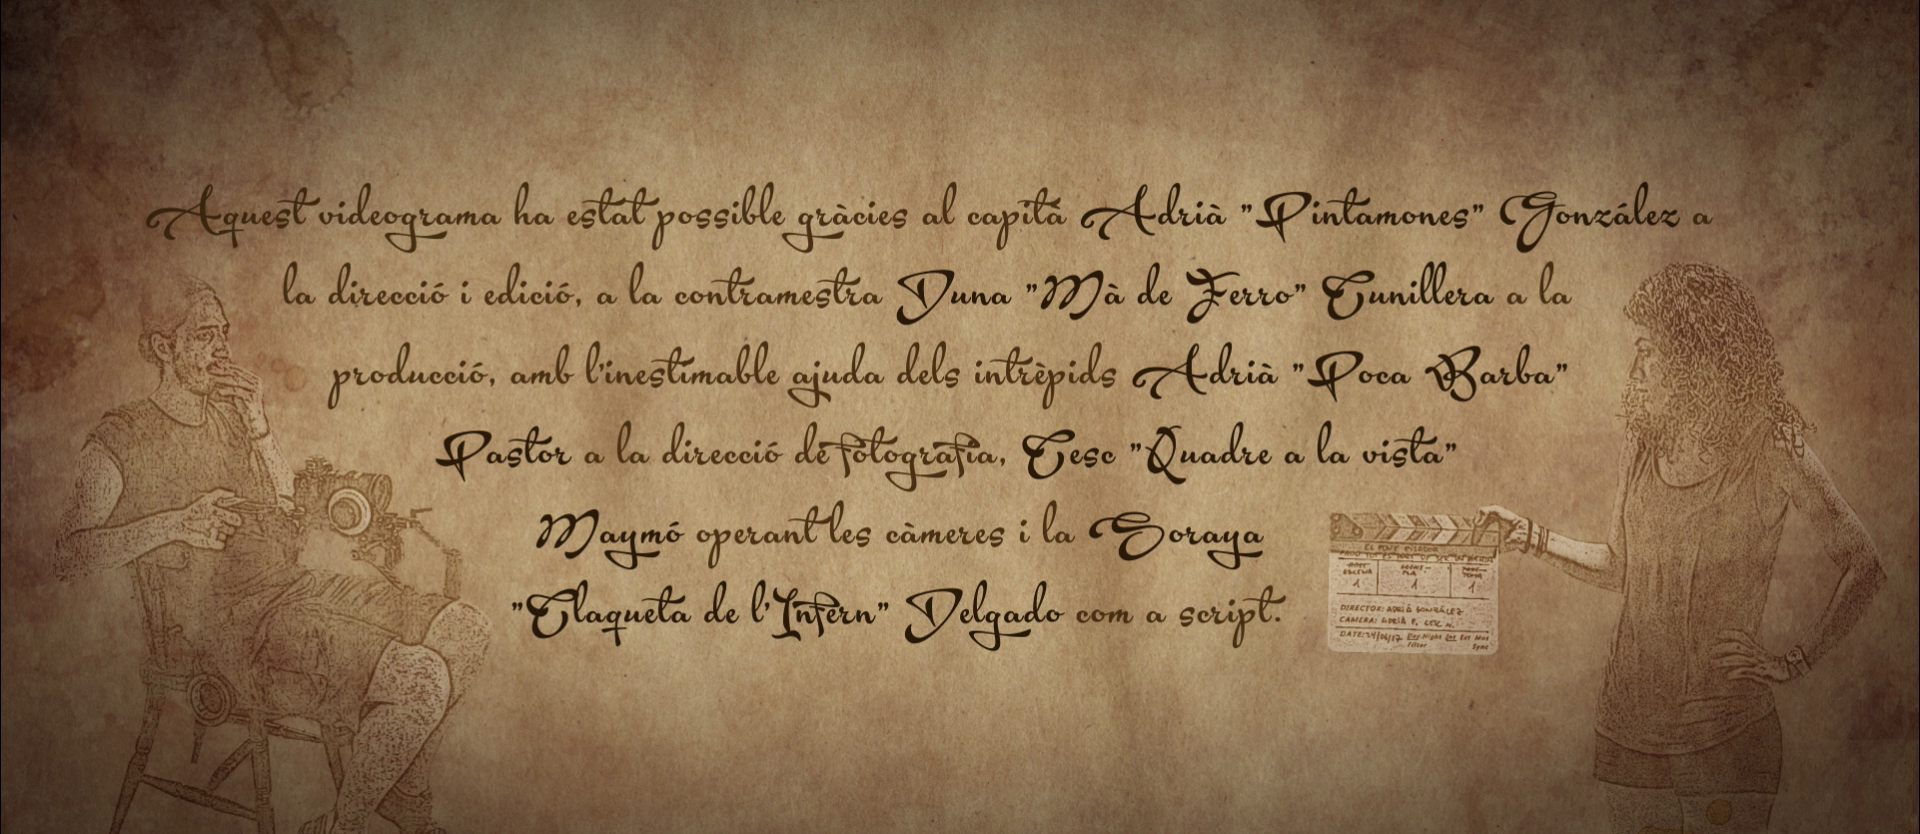 Aquest videograma ha estat possible gràcies al capità Adrià "Pintamones" González a
la direcció i edició, a la contramestra Duna "Mà de Ferro" Cunillera a la
producció, amb l'inestimable ajuda dels intrèpids Adrià "Poca Barba"
Pastor a la direcció de fotografia, Cesc "Quadre a la vista"
Maymó operant les càmeres i la Soraya
"Claqueta de l'Infern" Delgado com a script.
1 1 1
DIRECTOR: ADRIÀ GONZÁLEZ
CAMERA: ADRIÀ P. CESC M.
DATE:
Filter Sync